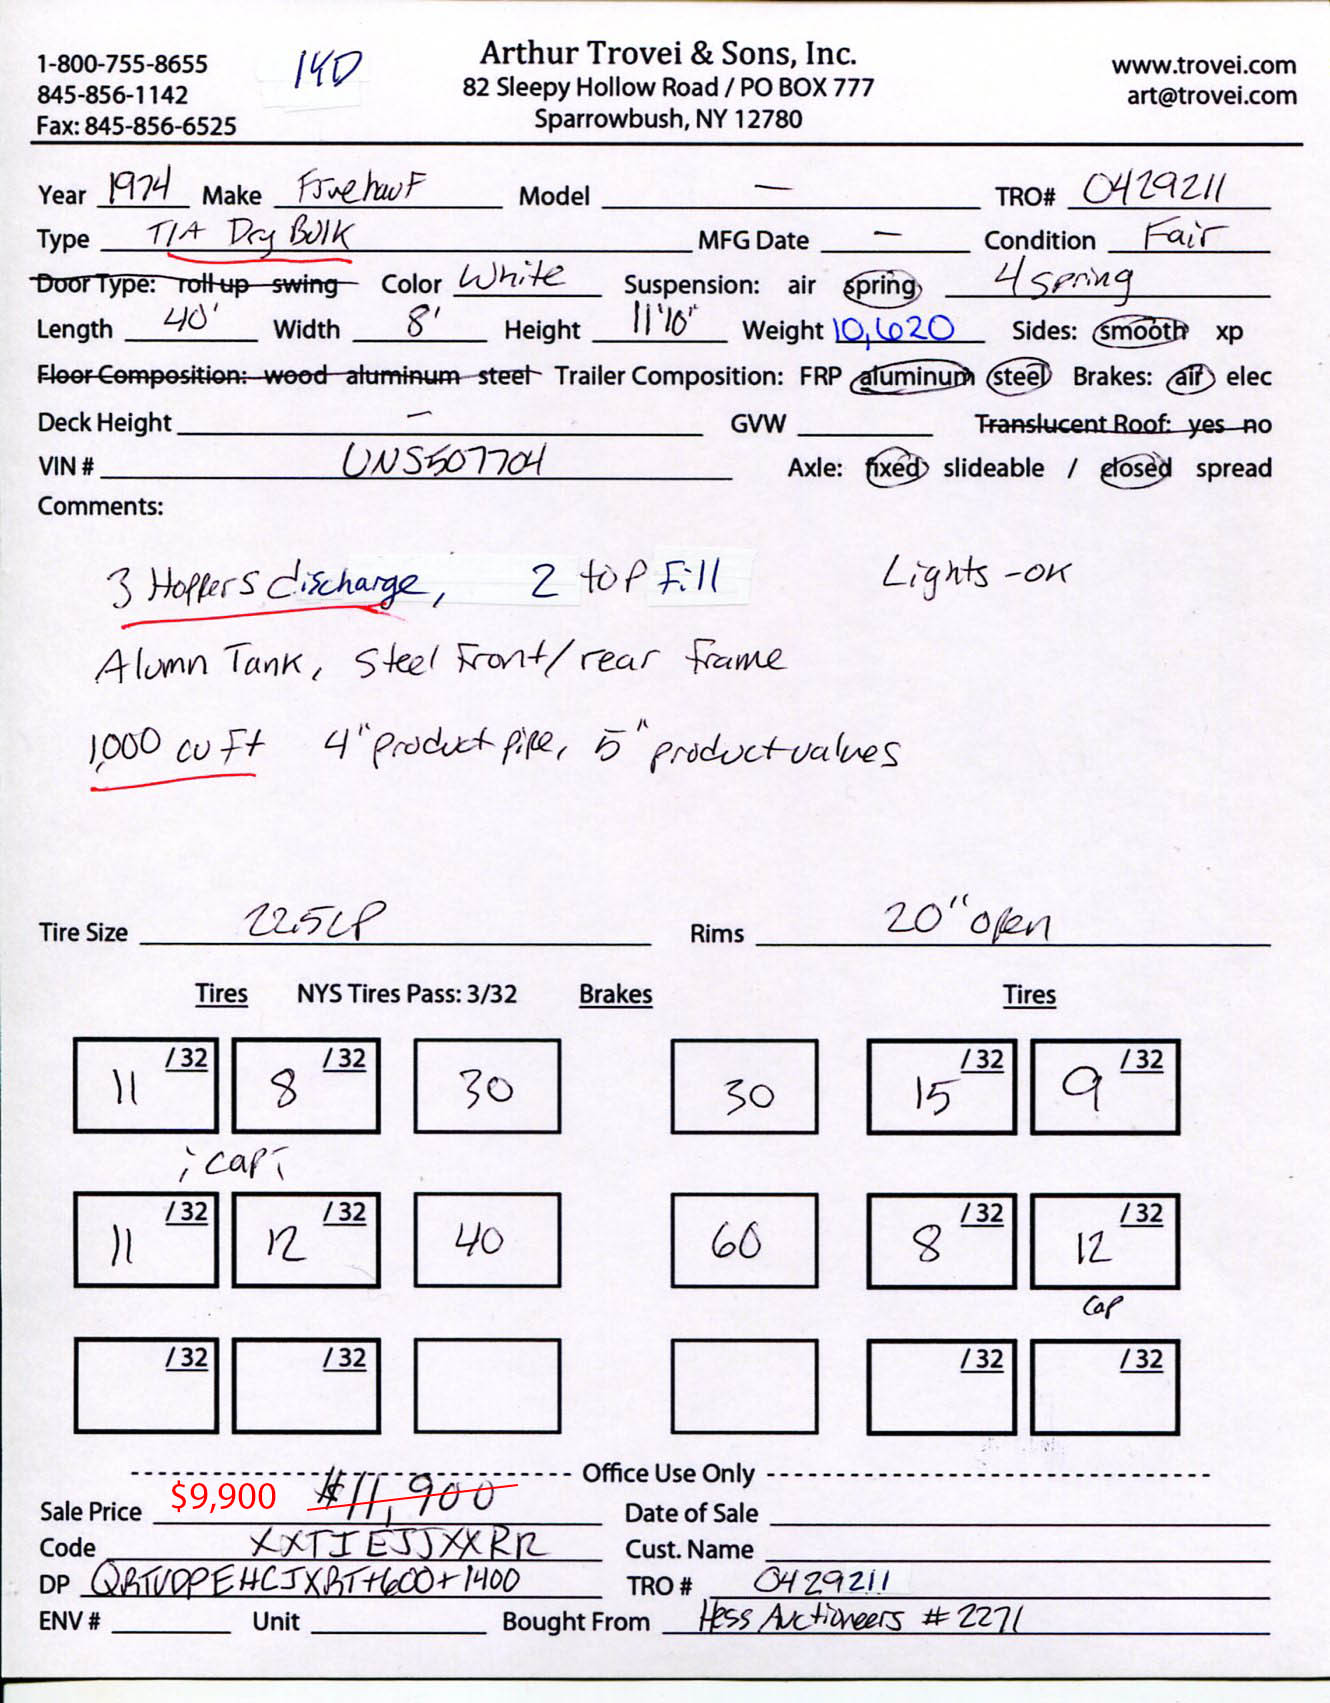 1-800-755-8655 14D Arthur Trovei & Sons, Inc. www.trovei.com
845-856-1142 82 Sleepy Hollow Road / PO BOX 777 art@trovei.com
Fax: 845-856-6525 Sparrowbush, NY 12780
Year 1974 Make Fruehauf Model — TRO# 0429211
Type T/A Dry Bulk MFG Date — Condition Fair
Door Type: roll up swing Color White Suspension: air spring 4 spring
Length 40' Width 8' Height 11'10" Weight 10,620 Sides: smooth xp
Floor Composition: wood aluminum steel Trailer Composition: FRP aluminum steel Brakes: air elec
Deck Height — GVW Translucent Roof: yes no
VIN # UNS507704 Axle: fixed slideable / closed spread
Comments:
3 Hoppers discharge, 2 top Fill Lights -OK
Alumn Tank, Steel Front/rear frame
1,000 cu Ft 4" product pipe, 5" product valves
Tire Size 22.5LP Rims 20" open
Tires NYS Tires Pass: 3/32 Brakes Tires
11 /32 8 /32 30 30 15 /32 9 /32
cap
11 /32 12 /32 40 60 8 /32 12 /32
cap
/32 /32 /32 /32
Office Use Only
Sale Price $9,900 $11,900 Date of Sale
Code XXTIEJJXXRR Cust. Name
DP QRTVDPEHCJXRT+600+1400 TRO # 0429211
ENV # Unit Bought From Hess Auctioneers # 2271